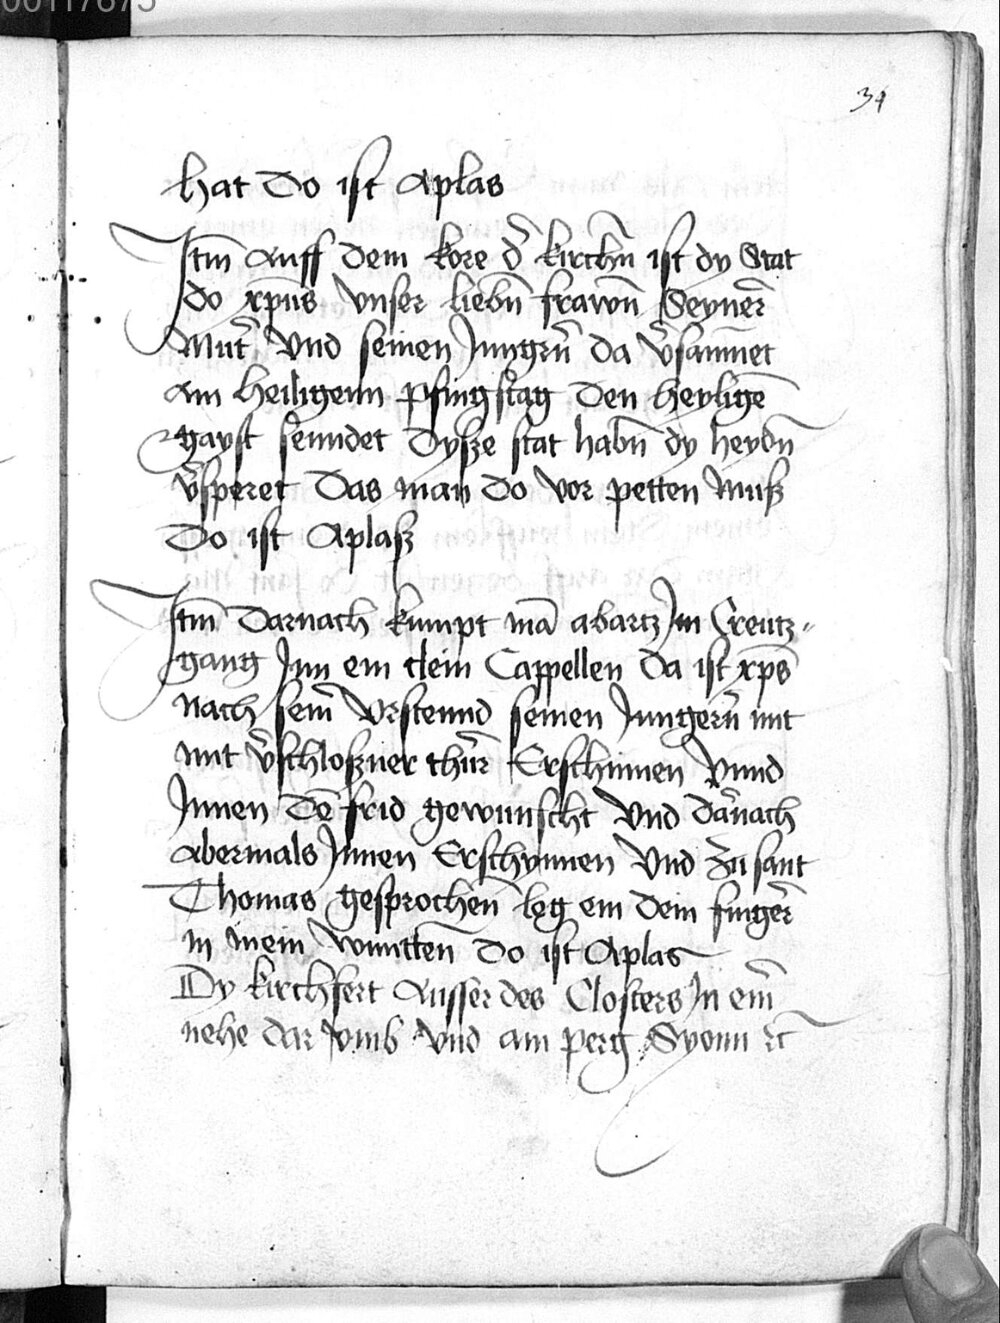 34
hat Do ist Aplas
Itm̄ Auff Dem kore d̉ kirchn̄ ist dy Stat
do xp̄us Vnser liebn̄ frawn̄ Seyner̄
Mut̉ Vnd seinen Jungrn̄ Da v̉sammet
Am Heiligenn Pfingstag Den heylige̅
gayst senndet Dysze stat habn̄ dy heydn̄
v̉speret Das man Do Vor petten Musz
Do ist Aplasz
Itm̄ Darnach kumpt ma̅ abartz Im Creutz-
gang Inn ein klein Cappellen Da ist xp̄s
nach sein̄ Vrstennd seinen Jungern̄ mit
mit v̉schloszner thür Erschinnen Vnnd
Innen De̅ frid gewunscht Vnd Dảnach
abermals Innen Erschynnen Vnd Zu sant
Thomas gesprochen leg ein dein finger
in mein wuntten Do ist Aplas
Dy kirchfert Ausser des Closters In ein̄
nehe dar Vmb Vnd am perg Syonn ꝛc